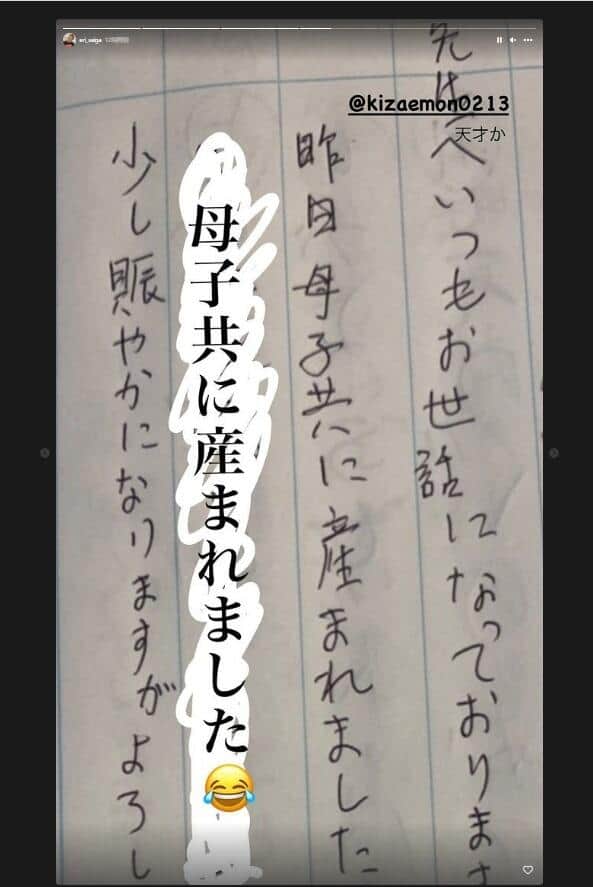 eri_saiga
@kizaemon0213
天才か
先生へいつもお世話になっておりま
昨日母子共に産まれました
母子共に産まれました😂
少し賑やかになりますがよろし